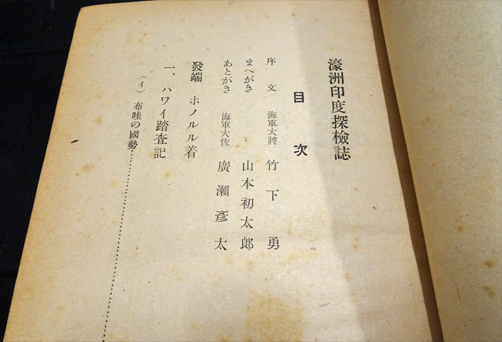 濠洲印度探檢誌
目次
序文 海軍大將 竹下勇
まへがき 山本初太郎
あとがき 海軍大佐 廣瀬彦太
發端 ホノルル着
一、ハワイ踏査記
（イ）布哇の國勢…………………